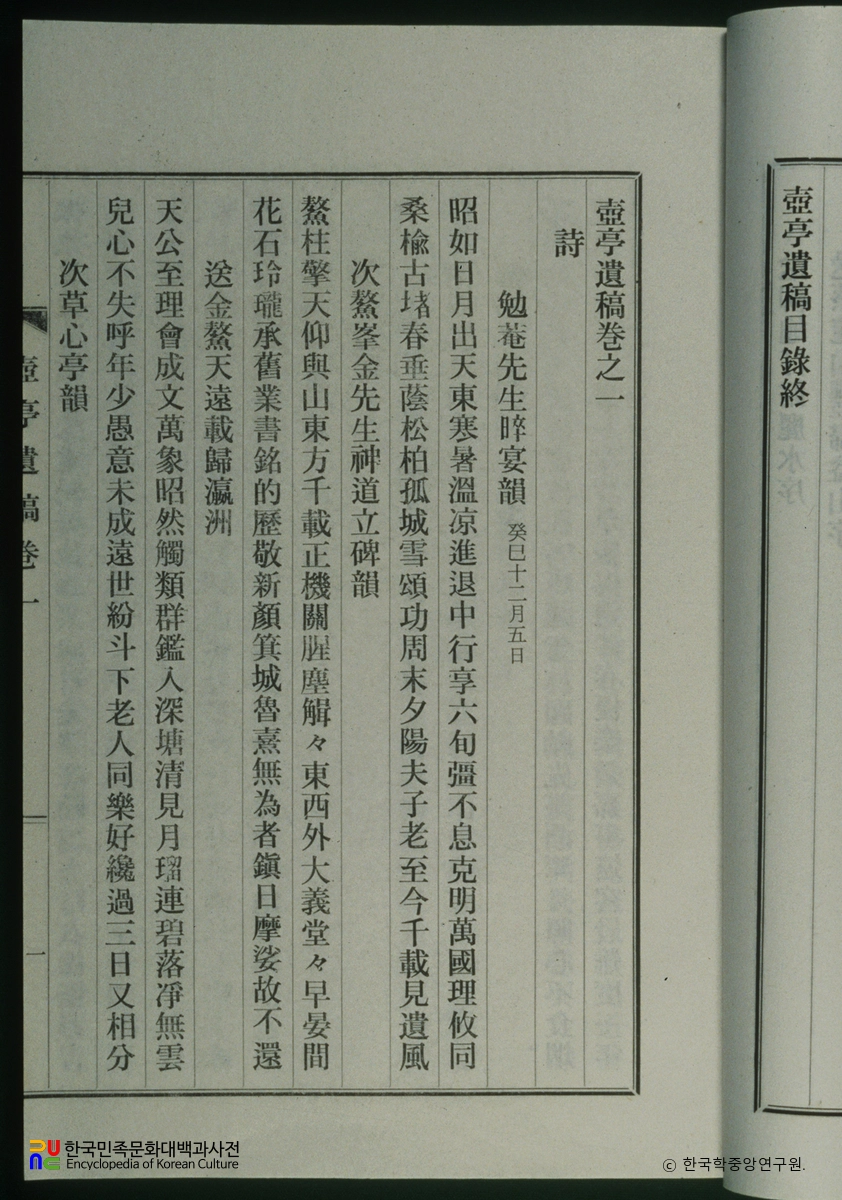 壺亭遺稿目錄終
壺亭遺稿卷之一
詩
勉菴先生晬宴韻 癸巳十二月五日
昭如日月出天東寒暑溫凉進退中行享六旬彊不息克明萬國理攸同
桑楡古堵春垂蔭松柏孤城雪頌功周末夕陽夫子老至今千載見遺風
次鰲峯金先生神道立碑韻
鰲柱擎天仰與山東方千載正機關腥塵緝々東西外大義堂々早晏間
花石玲瓏承舊業書銘的歷敬新顏箕城魯熹無為者鎭日摩娑故不還
送金鰲天遠載歸瀛洲
天公至理會成文萬象昭然觸類群鑑入深塘清見月瑠連碧落凈無雲
兒心不失呼年少愚意未成遠世紛斗下老人同樂好纔過三日又相分
次草心亭韻
壺亭遺稿卷一
一
한국민족문화대백과사전
Encyclopedia of Korean Culture
ⓒ 한국학중앙연구원.